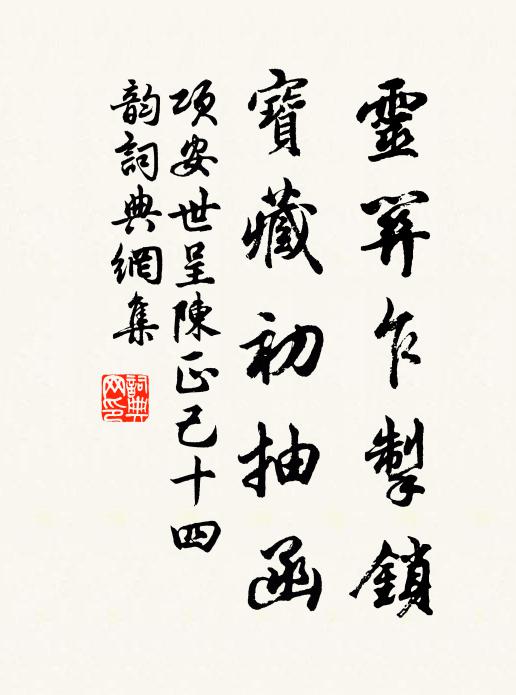 靈關乍掣鎖
寶藏初抽函
項安世呈陳正己十四
韵詞典網集
詞典
网印